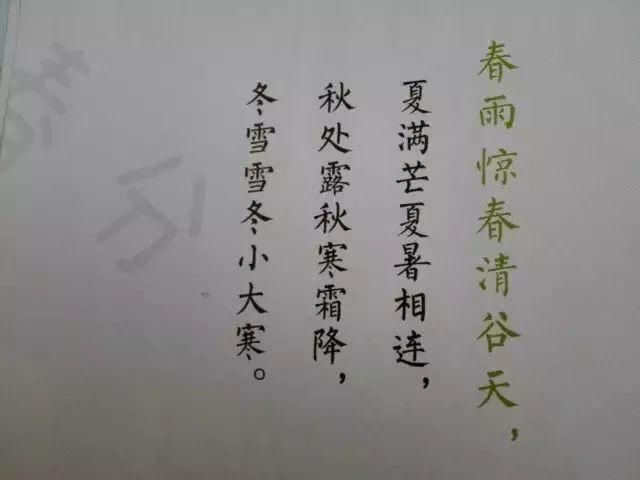 春雨惊春清谷天，
夏满芒夏暑相连，
秋处露秋寒霜降，
冬雪雪冬小大寒。